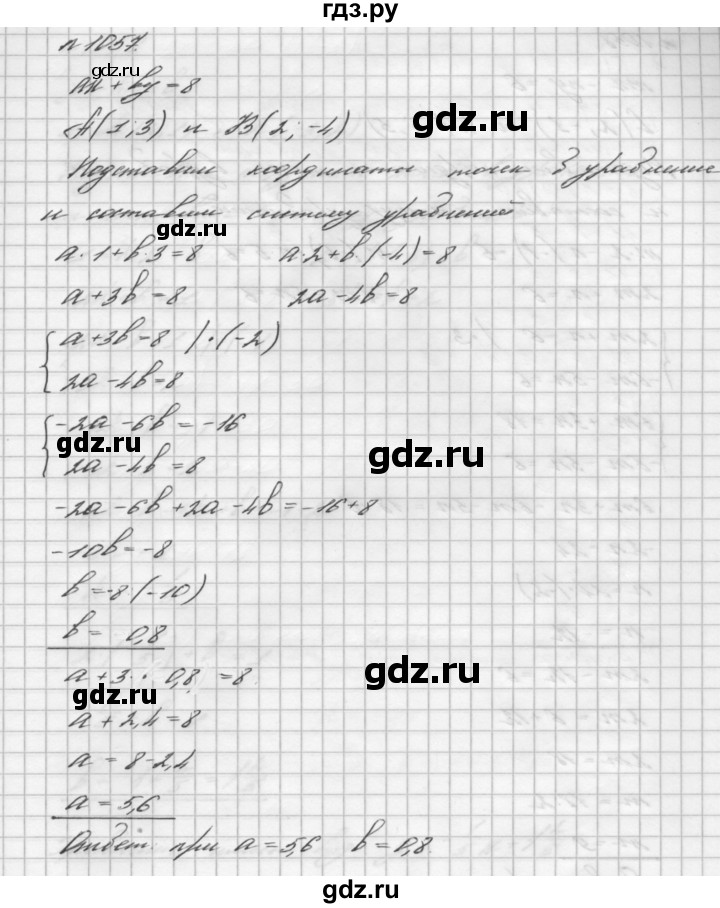 гдз.ру
№ 1057.
gdz.ru
ax + by = 8
gdz.ru
A(1; 3) и B(2; -4)
Подставим координаты точек в уравнение
и составим систему уравнений
gdz.ru
a·1 + b·3 = 8 a·2 + b·(-4) = 8
a + 3b = 8 2a - 4b = 8
a + 3b = 8 | ·(-2)
2a - 4b = 8
-2a - 6b = -16
gdz.ru
gdz.ru
2a - 4b = 8
-2a - 6b + 2a - 4b = -16 + 8
-10b = -8
b = -8:(-10)
b = 0,8
gdz.ru
a + 3 · 0,8 = 8
gdz.ru
a + 2,4 = 8
a = 8 - 2,4
a = 5,6
Ответ: при a = 5,6 b = 0,8.
gdz.ru